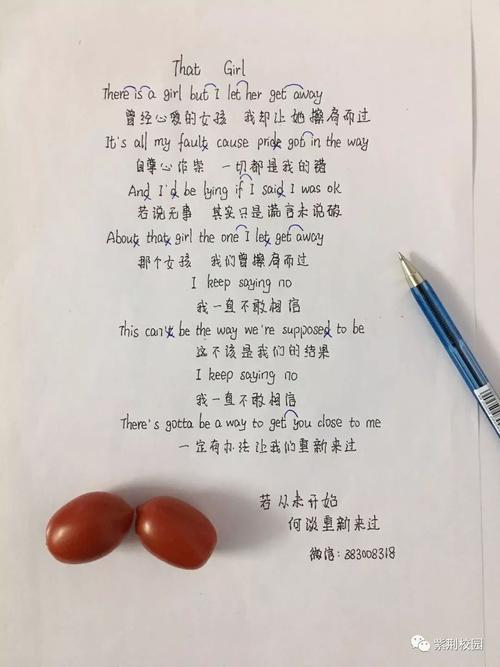 That Girl
There is a girl but I let her get away
曾经心爱的女孩 我却让她擦肩而过
It's all my fault cause pride got in the way
自尊心作祟 一切都是我的错
And I'd be lying if I said I was ok
若说无事 其实只是谎言未说破
About that girl the one I let get away
那个女孩 我们曾擦肩而过
I keep saying no
我一直不敢相信
This can't be the way we're supposed to be
这不该是我们的结果
I keep saying no
我一直不敢相信
There's gotta be a way to get you close to me
一定有办法让我们重新来过
若从未开始
何谈重新来过
微信:383008318
紫荆校园